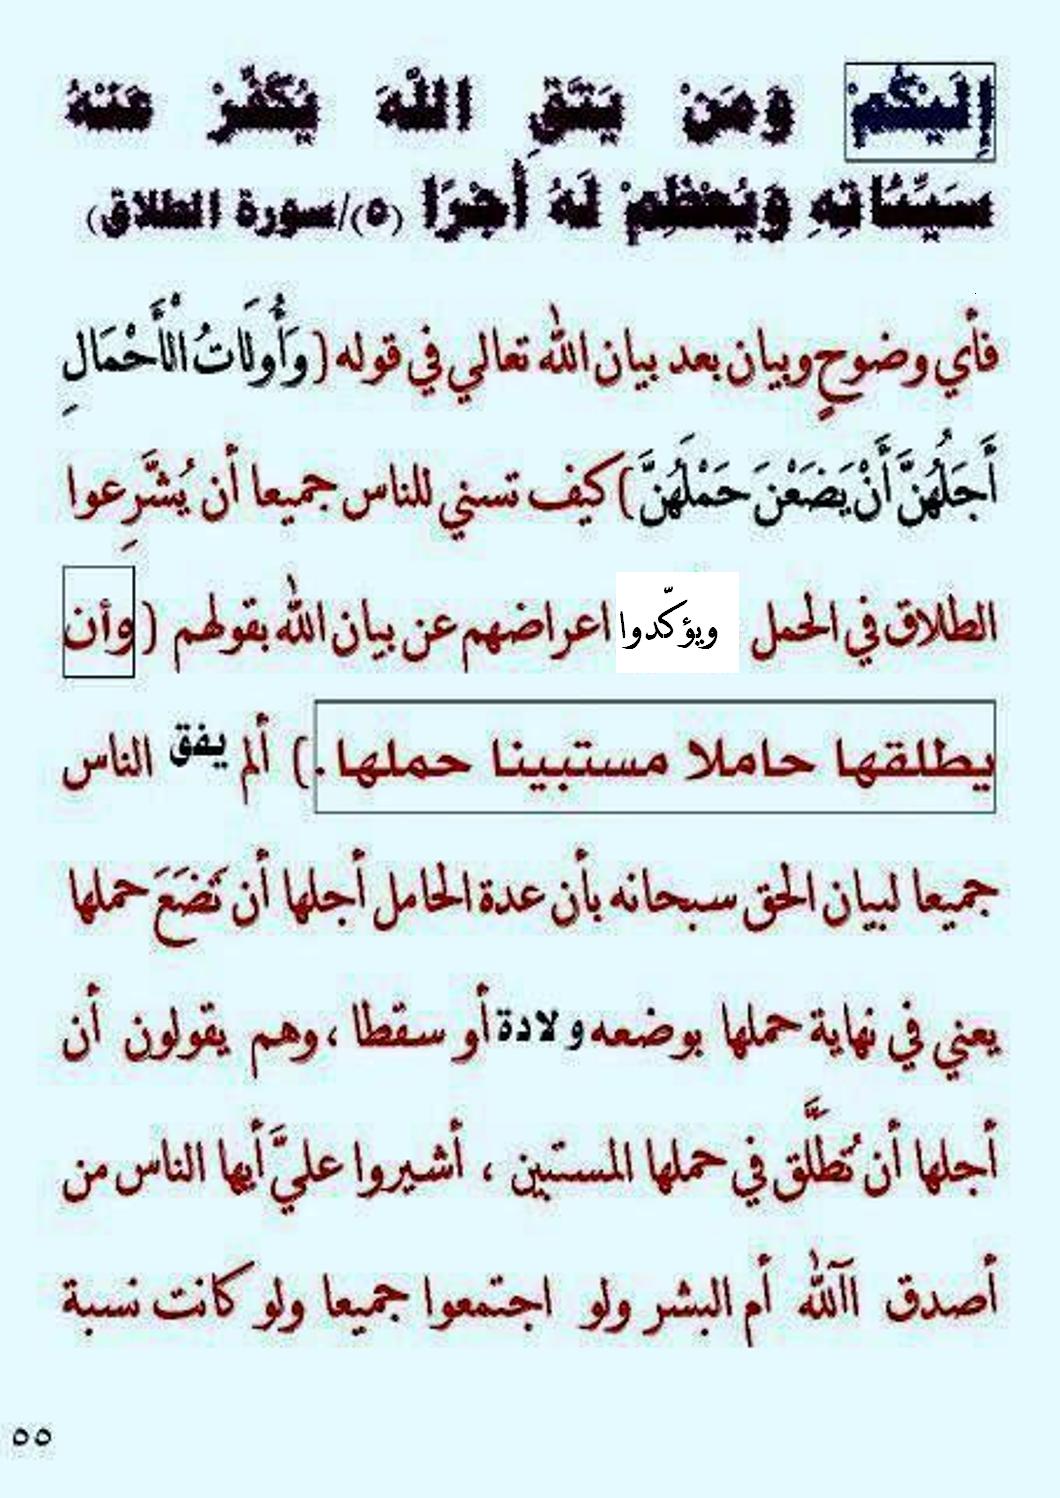 إِلَيْكُمْ وَمَنْ يَتَّقِ اللَّهَ يُكَفِّرْ عَنْهُ
سَيِّئَاتِهِ وَيُعْظِمْ لَهُ أَجْرًا (٥)/سورة الطلاق)
فأي وضوحٍ وبيان بعد بيان الله تعالي في قوله (وَأُولَاتُ الْأَحْمَالِ
أَجَلُهُنَّ أَنْ يَضَعْنَ حَمْلَهُنَّ) كيف تسني للناس جميعا أن يُشَّرِعوا
الطلاق في الحمل ويؤكّدوا اعراضهم عن بيان الله بقولهم ( وأن
يطلقها حاملا مستبينا حملها.) ألم يفق الناس
جميعا لبيان الحق سبحانه بأن عدة الحامل أجلها أن تَضَعَ حملها
يعني في نهاية حملها بوضعه ولادة أو سقطا ، وهم يقولون أن
أجلها أن تُطَلَّق في حملها المستبين ، أشيروا عليَّ أيها الناس من
أصدق آالله أم البشر ولو اجتمعوا جميعا ولو كانت نسبة
٥٥